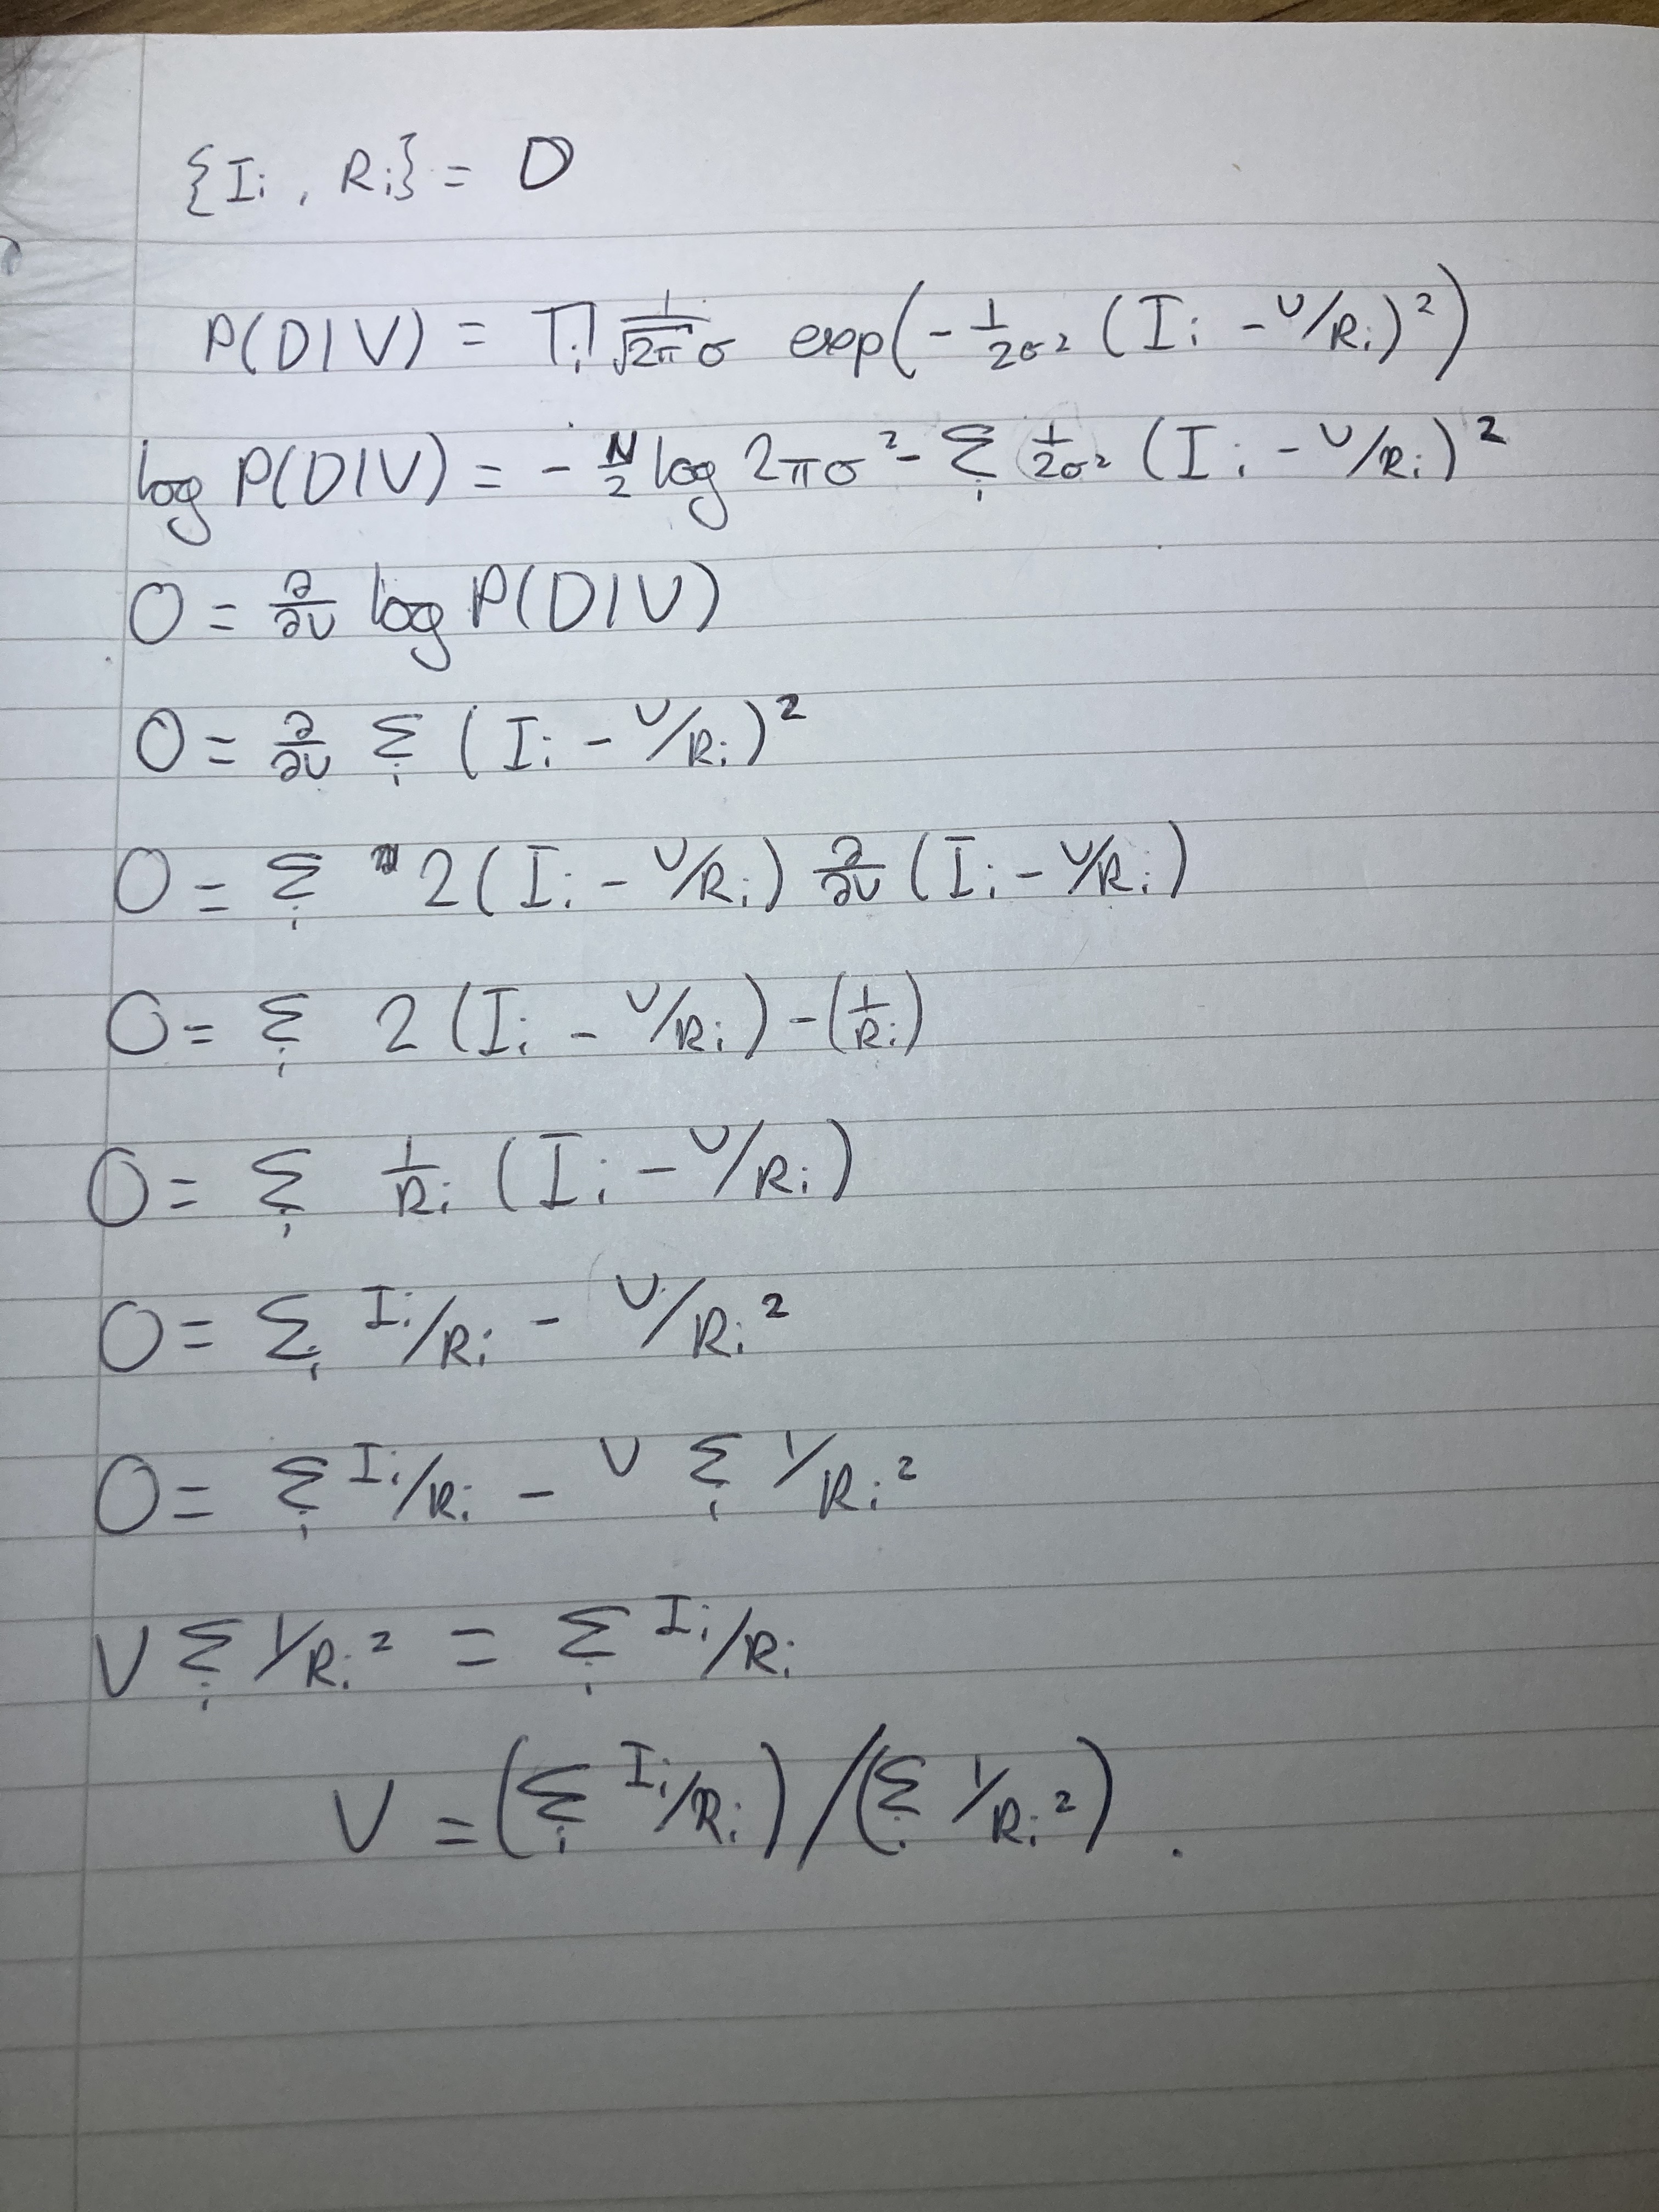 {Iᵢ, Rᵢ} = D
P(D|V) = Πᵢ 1/(√2π σ) exp(-1/2σ² (Iᵢ - V/Rᵢ)²)
log P(D|V) = - N/2 log 2πσ² - Σᵢ 1/2σ² (Iᵢ - V/Rᵢ)²
0 = ∂/∂V log P(D|V)
0 = ∂/∂V Σᵢ (Iᵢ - V/Rᵢ)²
0 = Σᵢ 2(Iᵢ - V/Rᵢ) ∂/∂V (Iᵢ - V/Rᵢ)
0 = Σᵢ 2(Iᵢ - V/Rᵢ) -(1/Rᵢ)
0 = Σᵢ 1/Rᵢ (Iᵢ - V/Rᵢ)
0 = Σᵢ Iᵢ/Rᵢ - V/Rᵢ²
0 = Σᵢ Iᵢ/Rᵢ - V Σᵢ 1/Rᵢ²
V Σᵢ 1/Rᵢ² = Σᵢ Iᵢ/Rᵢ
V = (Σᵢ Iᵢ/Rᵢ)/(Σᵢ 1/Rᵢ²).